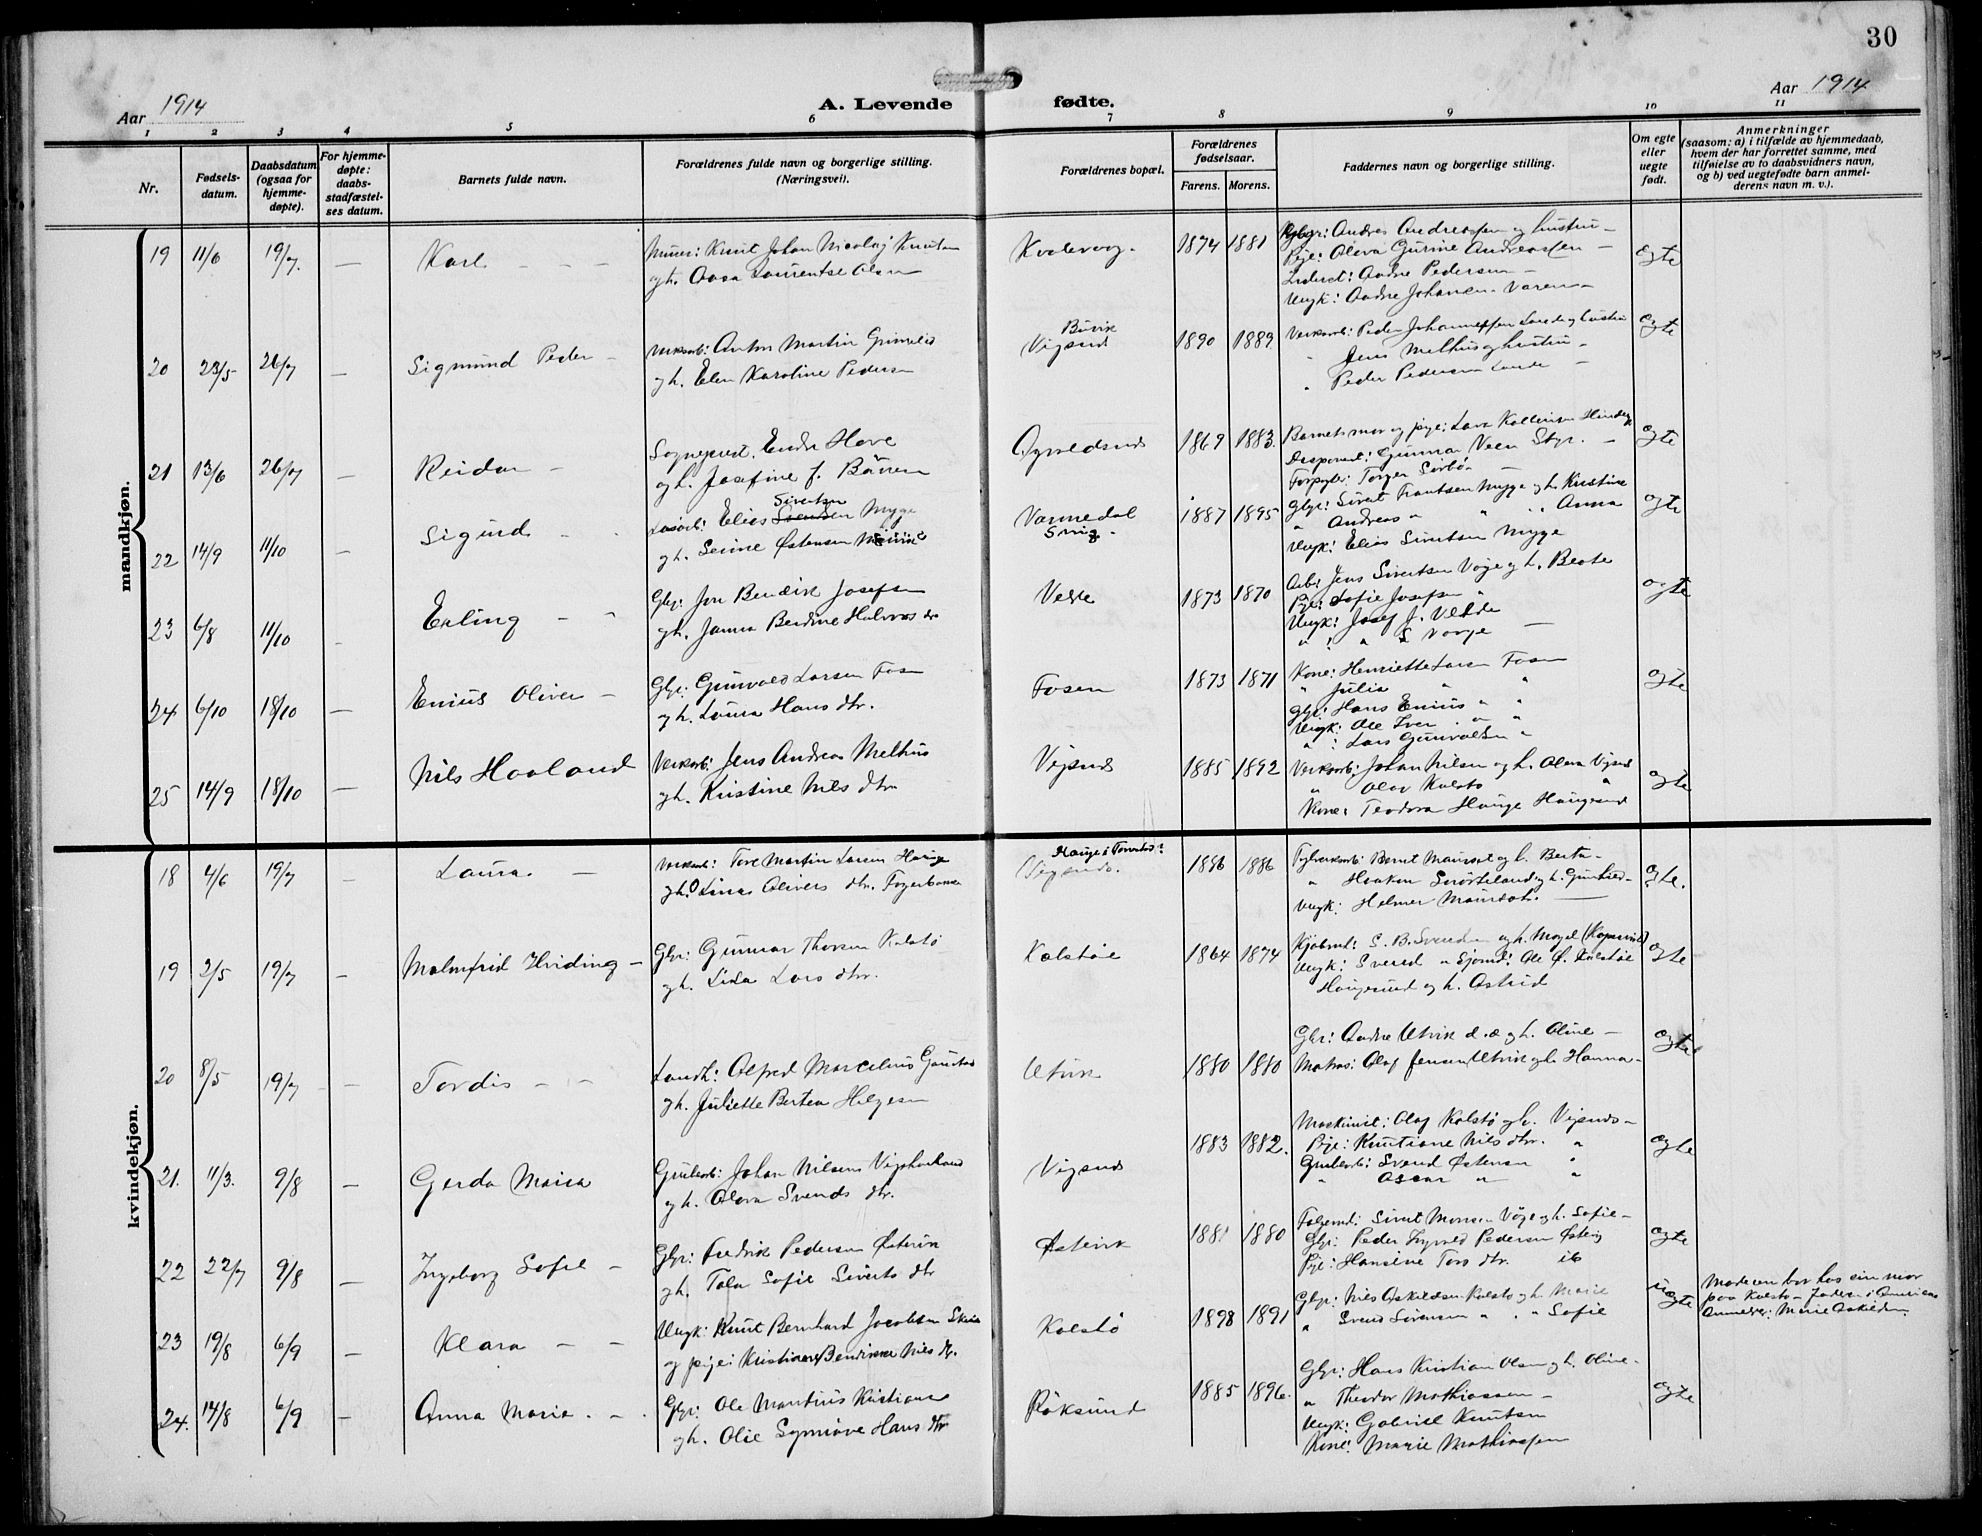 30
Aar 1914
A. Levende fødte.
Aar 1914
1 2 3 4 5 6 7 8 9 10 11
Nr.
Fødsels-
datum.
Daabsdatum
(ogsaa for
hjemme-
døpte).
For hjemme-
døpte:
daabs-
stadfæstel-
ses datum.
Barnets fulde navn.
Forældrenes fulde navn og borgerlige stilling.
(Næringsvei).
Forældrenes bopæl.
Forældrenes
fødselsaar.
Farens. Morens.
Faddernes navn og borgerlige stilling.
Om egte
eller
uegte
født.
Anmerkninger
(saasom: a) i tilfælde av hjemmedaab,
hvem der har forrettet samme, med
tilføielse av to daabsvidners navn,
og b) ved uegtefødte barn anmel-
derens navn m. v.).
mandkjøn.
19 11/6 19/7 — Karl — — —
Murer: Knut Johan Nicolaj Knutsen
og h. Aasa Laurentse Olsen
Kvalevaag. 1874 1881
Gbr: Andreas Andreassen og hustru —
Pige: Olava Gurine Andreassen —
Aadne Pedersen —
Ungk: Aadne Johansen
egte
20 23/5 26/7 — Sigmund Peder —
Verksarb: Anton Martin
og h. Elen Karoline Pedersen
Vigsnes 1890 1889
Verksarb: Peder Johannessen Lande og hustru
" Jens Melhus og hustru —
" Peder Pedersen Lande —
egte
21 13/6 26/7 Reidar —
Endre Hove
og h. Josefine f.
1869 1883.
Barnets mor og pige: Lava
Disponent: Gunnar Veen Styr. —
Torger
egte
22 14/9 11/10 — Sigurd — —
Elias Svendsen Sivertsen Mygge
og h. Serine Østensen
Vormedal
1887 1895
Gbr: Sivert Mygge og h. Kristine
" Andreas " " " Anna
Ungk: Elias Sivertsen Mygge
egte
23 6/8 11/10 - Erling — —
Gbr: Jon Bendik Josefsen
og h. Janna Berdine Halvors dtr
Velde 1873 1870
Arb: Jens Sivertsen Vaage og h. Beate
Pige: Sofie Josefsen "
Ungk: Josef J. Velde
egte
24 6/10 18/10 — Enius Oliver —
Gbr: Gunvald Larsen Fosen
og h. Laura Hans dtr.
Fosen 1873 1871
Kone: Henriette Larsen Fosen
" Julia " "
Gbr: Hans Enius " "
Ungk: Ole Iver " "
" : Lars Gunvaldsen "
egte
25 14/9 18/10 — Nils Haaland
Verksarb: Jens Andreas Melhus
og h. Kristine Nils dtr
Vigsnes 1885 1892
Verksarb: Johan Nilsen og h. Olava Vigsnes
" Olav Kalstø "
Kone: Teodora Hauge Haugesund
egte
kvindekjøn.
18 4/6 19/7 — Laura. —
Verksarb: Tore Martin Larsen Hauge
og h. Lina Olivers dtr.
Vigsnes. 1886 1886
Bernt og h. Berta —
" Haakon og h. —
Ungk: Helmer —
egte.
19 2/5 19/7 — Malmfrid Hviding —
Gbr: Gunnar Thorsen Kalstø
og h. Lida Lars dtr.
Kalstøe 1864 1874
S. B. Svendsen og h.
Ungk: Svend " Sjømd: Ole Ø. Kalstøe
Haugesund og h. Astrid
egte
20 8/5 19/7 — Tordis — —
Landh: Alfred Marcelius
og h. Juliette Bertea Helgesen
Utvik 1880 1880
Gbr: Aadne Utvik d. æ og h. Oline —
Matros: Olaf Jensen Utvik og h. Hanna —
egte
21. 11/3. 9/8 — Gerda Maria
Grubearb: Johan Nilsen
og h. Olava Svends dtr.
Vigsnes 1883 1882.
Maskinist: Olaf Kalstø og h. Vigsnes —
Pige: Knutiane Nils dtr. "
Grubearb: Svend Østensen "
" Oscar " "
egte
22 22/7 9/8 — Ingeborg Sofie —
Gbr: Fredrik Pedersen Østevik
og h. Tala Sofie Siverts dtr
Østevik 1881 1880
Sivert Monsen Vaage og h. Sofie —
Gbr: Peder Ingvald Pedersen
Pige: Hansine Tors dtr. ib
egte
23 19/8 6/9 — Klara — —
Ungk: Knut Bernhard Jacobsen
og pige: Kristiane Bendikke Nils dtr.
Kalstø 1898 1891
Gbr: Nils Askildsen Kalstø og h. Marie
" Svend Sørensen " " Sofie
uegte
Moderen bor hos sin mor
paa Kalstø — Faderen i Amerika
Anmelder: Marie Askildsen
24. 14/8 6/9 — Anna Marie. —
Gbr: Ole Mantius Kristiansen
og h. Olie Synnøve Hans dtr
Røksund 1885 1896.
Gbr: Hans Kristian Olsen og h. Oline —
" Theodor Mathiassen —
Ungk: Gabriel Knutsen
Kone: Marie Mathiassen
egte